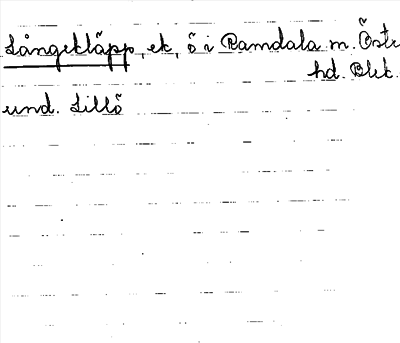 Långeklåpp, ek, ö i Ramdala sn. Östr
hd. Blek.
und. Lillö